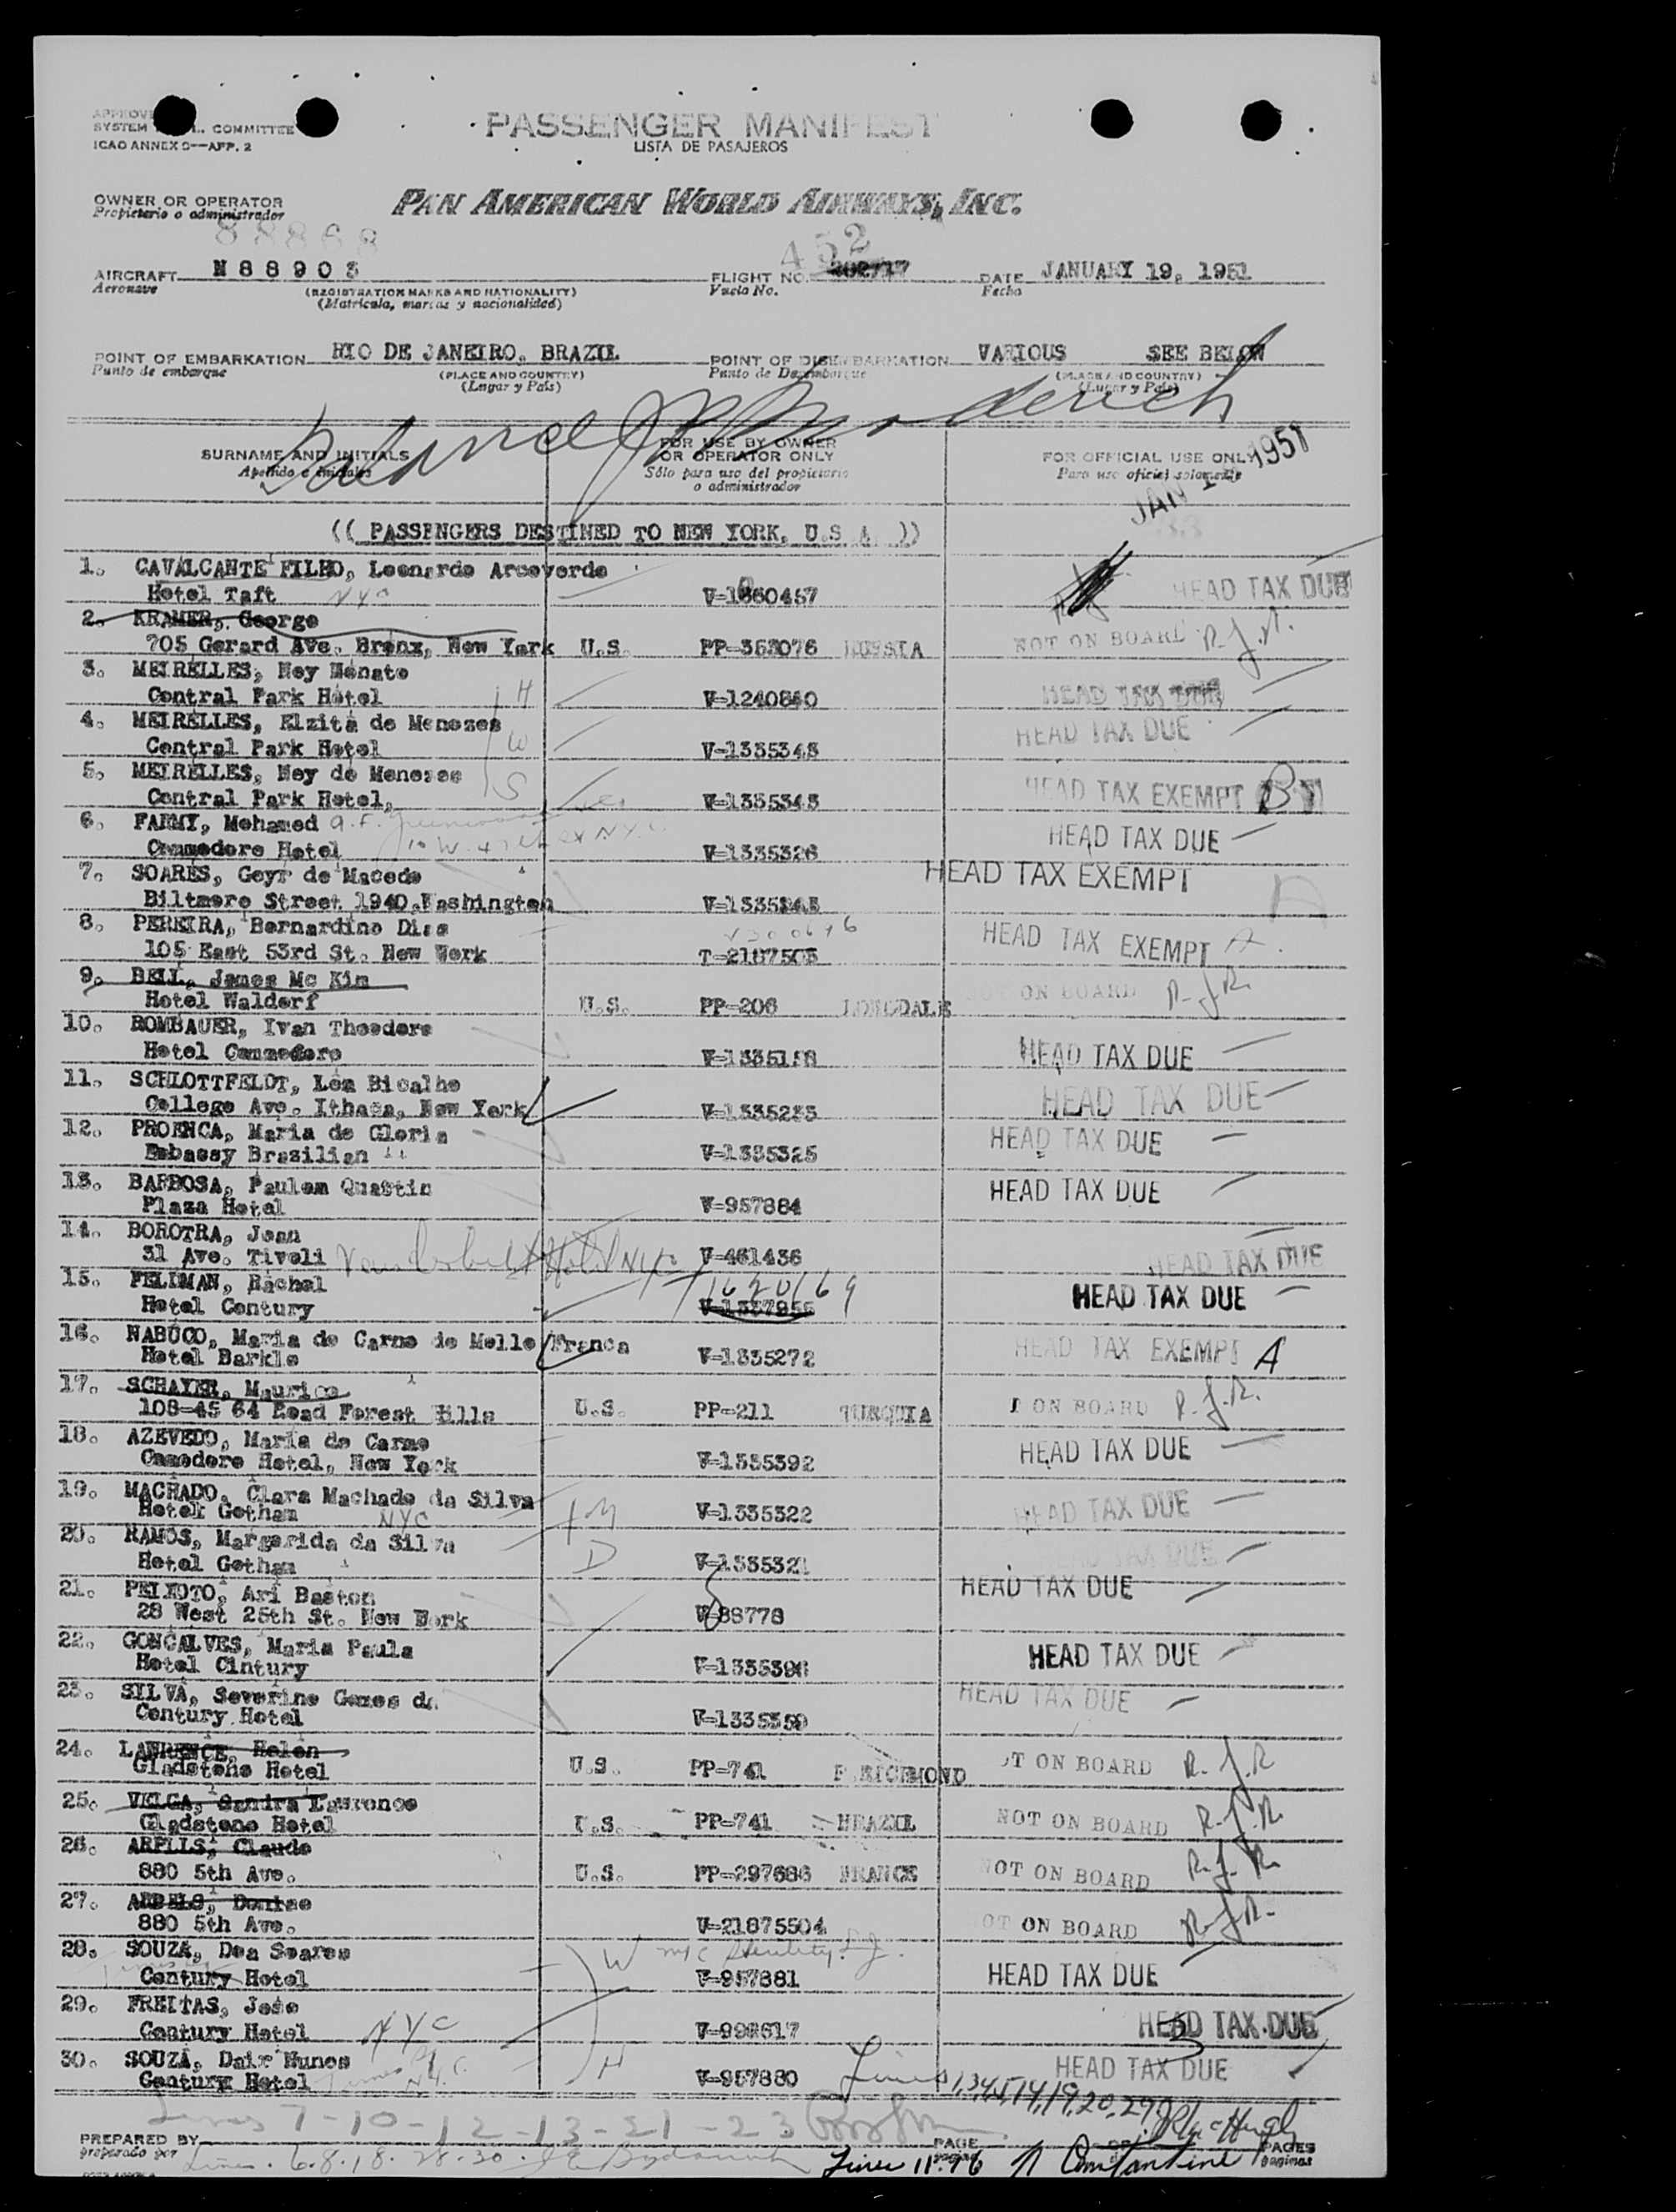 SYSTEM COMMITTEE
ICAO ANNEX 9—APP. 2
PASSENGER MANIFEST
LISTA DE PASAJEROS
OWNER OR OPERATOR
Propietario o administrador
PAN AMERICAN WORLD AIRWAYS, INC.
88868
452
AIRCRAFT N 8 8 9 0 3 FLIGHT NO. 202717 DATE JANUARY 19, 1951
Aeronave (REGISTRATION MARKS AND NATIONALITY) Vuelo No. Fecha
(Matrícula, marcas y nacionalidad)
POINT OF EMBARKATION RIO DE JANEIRO, BRAZIL POINT OF DISEMBARKATION VARIOUS SEE BELOW
Punto de embarque (PLACE AND COUNTRY) Punto de Desembarque (PLACE AND COUNTRY)
(Lugar y País) (Lugar y País)
SURNAME AND INITIALS FOR USE BY OWNER OR OPERATOR ONLY FOR OFFICIAL USE ONLY
Apellido e iniciales Sólo para uso del propietario o administrador Para uso oficial solamente
JAN 1951
(( PASSENGERS DESTINED TO NEW YORK, U.S.A. ))
1. CAVALCANTE FILHO, Leonardo Arcoverde
Hotel Taft NYC V-1860457 HEAD TAX DUE
2. KRAMER, George
705 Gerard Ave. Bronx, New York U.S. PP-363076 RUSSIA NOT ON BOARD R.J.R.
3. MEIRELLES, Ney Menato
Central Park Hotel H V-1240840 HEAD TAX DUE
4. MEIRELLES, Elzita de Menezes
Central Park Hotel W V-1335348 HEAD TAX DUE
5. MEIRELLES, Ney de Menezes
Central Park Hotel, S V-1335343 HEAD TAX EXEMPT B
6. FAHMY, Mohamed
Commodore Hotel V-1335326 HEAD TAX DUE
7. SOARES, Geyr de Macedo HEAD TAX EXEMPT A
Biltmore Street 1940, Washington V-1335343
8. PEREIRA, Bernardino Dias
105 East 53rd St. New Work T-2187505 HEAD TAX EXEMPT A
9. BELL, James Mc Kim
Hotel Waldorf U.S. PP-206 LONGDALE ON BOARD R.J.R.
10. ROMBAUER, Ivan Theodore
Hotel Commodore V-1335158 HEAD TAX DUE
11. SCHLOTTFELDT, Léa Bicalho
College Ave. Ithaca, New York V-1335235 HEAD TAX DUE
12. PROENCA, Maria de Gloria
Embassy Brasilian V-1335325 HEAD TAX DUE
13. BARBOSA, Paulem Quastin
Plaza Hotel V-957884 HEAD TAX DUE
14. BOROTRA, Jean
31 Ave. Tivoli Vanderbilt Hotel NYC V-461436 HEAD TAX DUE
15. FELDMAN, Rachel T 1620169
Hotel Century V-1337955 HEAD TAX DUE
16. NABUCO, Maria do Carmo de Mello Franca
Hotel Barkle V-1335272 HEAD TAX EXEMPT A
17. SCHAYER, Maurice
108-45 64 Road Forest Hills U.S. PP-211 TURQUIA ON BOARD R.J.R.
18. AZEVEDO, Maria do Carmo
Commodore Hotel, New York V-1335392 HEAD TAX DUE
19. MACHADO, Clara Machado da Silva
Hotel Gotham NYC M V-1335322 HEAD TAX DUE
20. RAMOS, Margarida da Silva
Hotel Gotham D V-1335321 HEAD TAX DUE
21. PEIXOTO, Ari Baston HEAD TAX DUE
28 West 25th St. New Work V-88778
22. GONCALVES, Maria Paula
Hotel Cintury V-1335396 HEAD TAX DUE
23. SILVA, Severino Gomes da
Century Hotel V-1335359 HEAD TAX DUE
24. LAWRENCE, Helen
Gladstone Hotel U.S. PP-741 P.RICHMOND OT ON BOARD R.J.R
25. VELGA, Sandra Lawrence
Gladstone Hotel U.S. PP-741 BRAZIL NOT ON BOARD R.J.R.
26. ARPLLS, Claude
880 5th Ave. U.S. PP-297686 FRANCE NOT ON BOARD R.J.R.
27. ARPELS, Denise
880 5th Ave. V-21875504 OT ON BOARD R.J.R.
28. SOUZA, Dea Soares W
Century Hotel V-957881 HEAD TAX DUE
29. FREITAS, Jose
Century Hotel NYC V-998617 HEAD TAX DUE
30. SOUZA, Dair Nunes
Century Hotel N.Y.C. H V-957880 HEAD TAX DUE
Lines 1,3,4,5,14,19,20,29
Lines 7-10-12-13-21-23
PREPARED BY PAGE OF PAGES
preparado por Lines 6.8.18.28.30 Lines 11.16 Constantine paginas